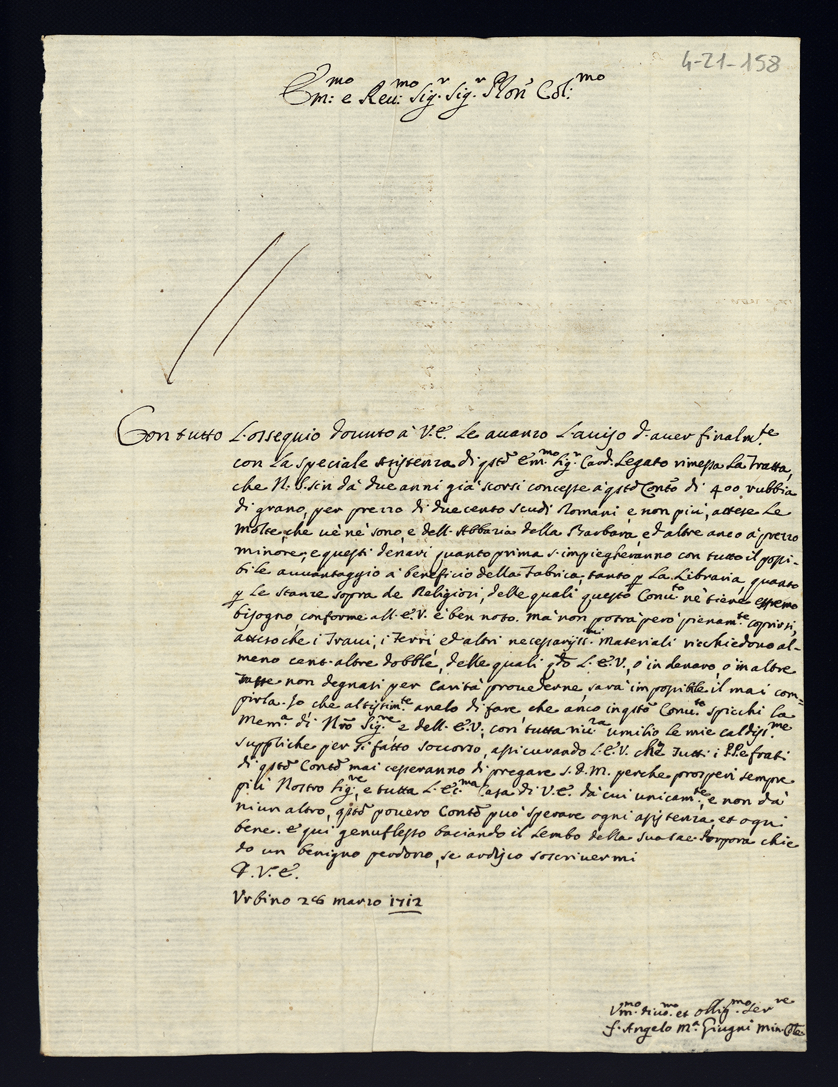 4-21-158
Em:mo e Reu:mo Sig.r Sig.r Pron Col:mo
Con tutto L'ossequio douuto à V.E. Le auanzo L'auiso d'auer finalm.te
con La speciale assistenza di qsto Em.mo Sig.r Card. Legato rimessa La Tratta,
che N. S. sin dà due anni già scorsi concesse à qsto Conto di 400 rubbia
di grano, per prezzo di duecento scudi Romani, e non più, attese Le
molte, che ue nè sono, e dell'Abbazia della Barbara, ed altre anco à prezzo
minore, e questi denari quanto prima s'impiegheranno con tutto il possi-
bile auuantaggio à beneficio della Fabrica, tanto p La Libraria, quanto
p Le stanze sopra de Religiosi, delle quali questo Conu.to nè tiene estremo
bisogno conforme all'E.V. è ben noto. Mà non potrà però pienam.te coprirsi,
attesoche i Traui, i Ferri ed altri necessarijss.mi materiali richiedono al-
meno cent'altre dobble, delle quali qdo L'E.V., ò in denaro, ò in altre
Tratte non degnasi per carità prouederne, sarà impossibile il mai com=
pirla. Io che altissim.te anelo di fare che anco in qsto Conu.to spicchi La
Mem.a di Nro Sig.re e dell'E.V. con tutta riu.za umilio le mie caldiss.me
suppliche per sì fatto soccorso, assicurando L'E.V. che Tutti i PP. e frati
di qsto Conto mai cesseranno di pregare S.D.M. perche prosperi sempre
più Nostro Sig.re, e tutta L'Ec.ma Casa di V.E. dà cui unicam.te, e non dà
niun altro, qsto pouero Conto può sperare ogni assistenza, et ogni
bene. E quì genuflesso baciando il Lembo della sua sac. Porpora chie
do un benigno perdono, se ardisco soscriuermi
D. V. E.
Vrbino 26 marzo 1712
Vm:mo diuo.mo et obblig.mo Ser.re
f. Angelo M.a Giugni Min. Con.le